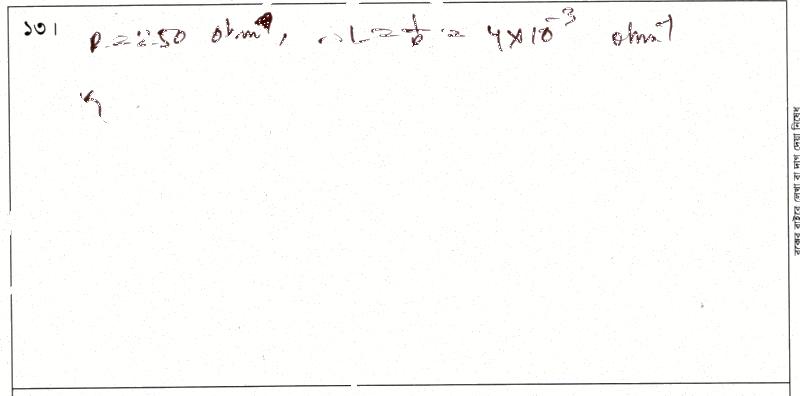 ১৩। R = 250 ohm, ∴ L = 1/R = 4×10⁻³ ohm⁻¹
বক্সের বাইরে লেখা বা দাগ দেয়া নিষেধ